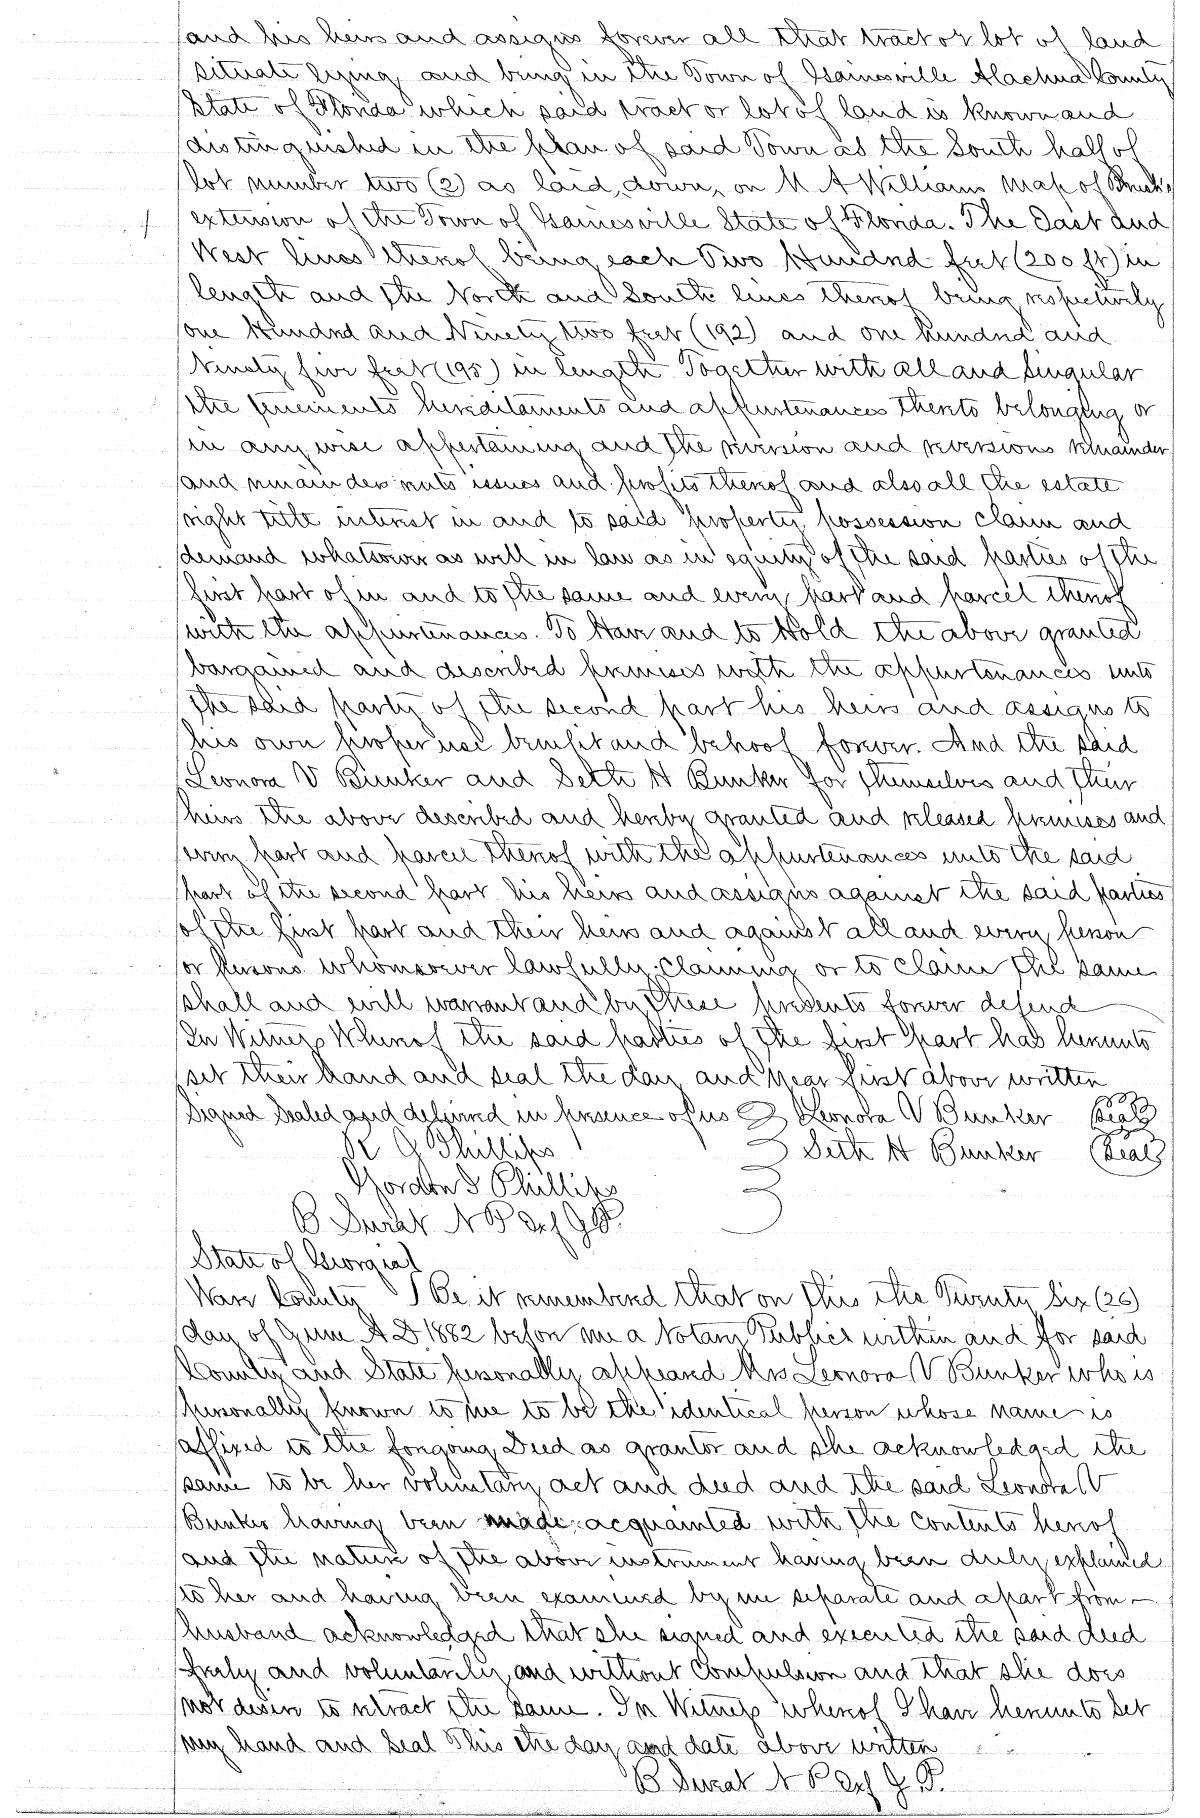 and his heirs and assigns forever all that tract or lot of land
situate lying and being in the Town of Gainesville Alachua County
State of Florida which said tract or lot of land is known and
distinguished in the plan of said Town as the South half of
lot number two (2) as laid down on M A Williams Map of
extension of the Town of Gainesville State of Florida. The East and
West lines thereof being each Two Hundred feet (200 ft) in
length and the North and South lines thereof being respectively
one Hundred and Ninety two feet (192) and one hundred and
Ninety five feet (195) in length Together with all and Singular
the tenements hereditaments and appurtenances thereto belonging or
in any wise appertaining and the reversion and reversions remainder
and remainders rents issues and profits thereof and also all the estate
right title interest in and to said property possession claim and
demand whatsoever as well in law as in equity of the said parties of the
first part of in and to the same and every part and parcel thereof
with the appurtenances. To Have and to Hold the above granted
bargained and described premises with the appurtenances unto
the said party of the second part his heirs and assigns to
his own proper use benefit and behoof forever. And the said
Leonora V Bunker and Seth H Bunker for themselves and their
heirs the above described and hereby granted and released premises and
every part and parcel thereof with the appurtenances unto the said
part of the second part his heirs and assigns against the said parties
of the first part and their heirs and against all and every person
or persons whomsoever lawfully claiming or to claim the same
shall and will warrant and by these presents forever defend
In Witness Whereof the said parties of the first part has hereunto
set their hand and seal the day and year first above written
Signed Sealed and delivered in presence of us Leonora V Bunker (Seal)
R G Phillips Seth H Bunker (Seal)
Gordon S Phillips
B Surat N P Exf J P.
State of Georgia
Ware County Be it remembered that on this the Twenty Six (26)
day of June A D 1882 before me a Notary Public within and for said
County and State personally appeared Mrs Leonora V Bunker who is
personally known to me to be the identical person whose name is
affixed to the foregoing Deed as grantor and she acknowledged the
same to be her voluntary act and deed and the said Leonora V
Bunker having been made acquainted with the contents hereof
and the nature of the above instrument having been duly explained
to her and having been examined by me separate and apart from
husband acknowledged that she signed and executed the said deed
freely and voluntarily and without Compulsion and that she does
not desire to retract the same. In Witness whereof I have hereunto set
my hand and Seal This the day and date above written
B Surat N P Exf J P.